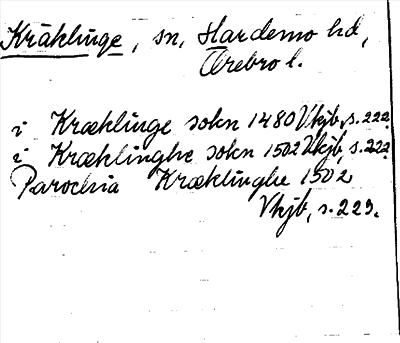 Kräklinge, sn, Hardemo hd,
Örebro l.
i Kræklinge sokn 1480 Vkjb, s. 222.
i Kræklinghe sokn 1502 Vkjb, s. 222.
Parochia Kræklinghe 1502
Vkjb, s. 223.